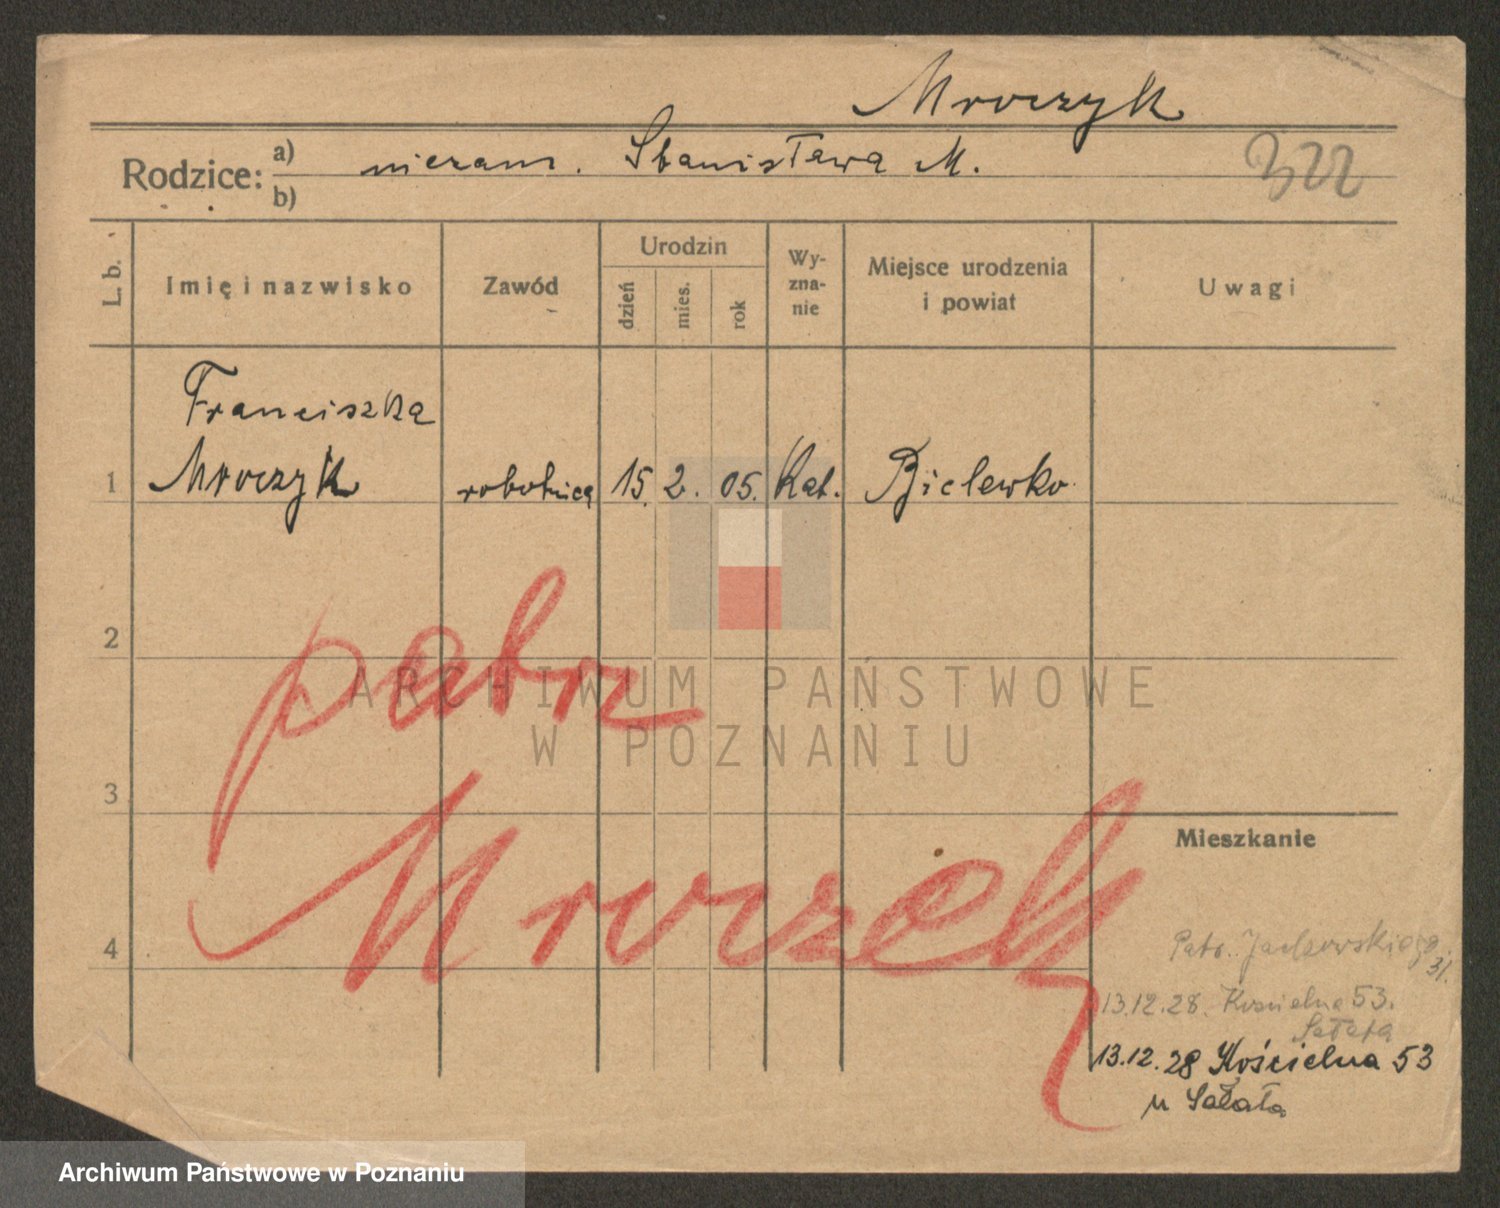 Mroczyk
Rodzice: a) niezam. Stanisława M.
b)
322
L. b.
Imię i nazwisko
Zawód
Urodzin
dzień
mies.
rok
Wy-
zna-
nie
Miejsce urodzenia
i powiat
Uwagi
Franciszka
1 Mroczyk robotnica 15. 2. 05. Kat. Bielewko
2
patrz
ARCHIWUM PAŃSTWOWE
W POZNANIU
3
Mroczek
Mieszkanie
4
Jackowskiego
31.
13.12.28. Kościelna 53.
Sałata
13.12.28 Kościelna 53
u Sałata
Archiwum Państwowe w Poznaniu